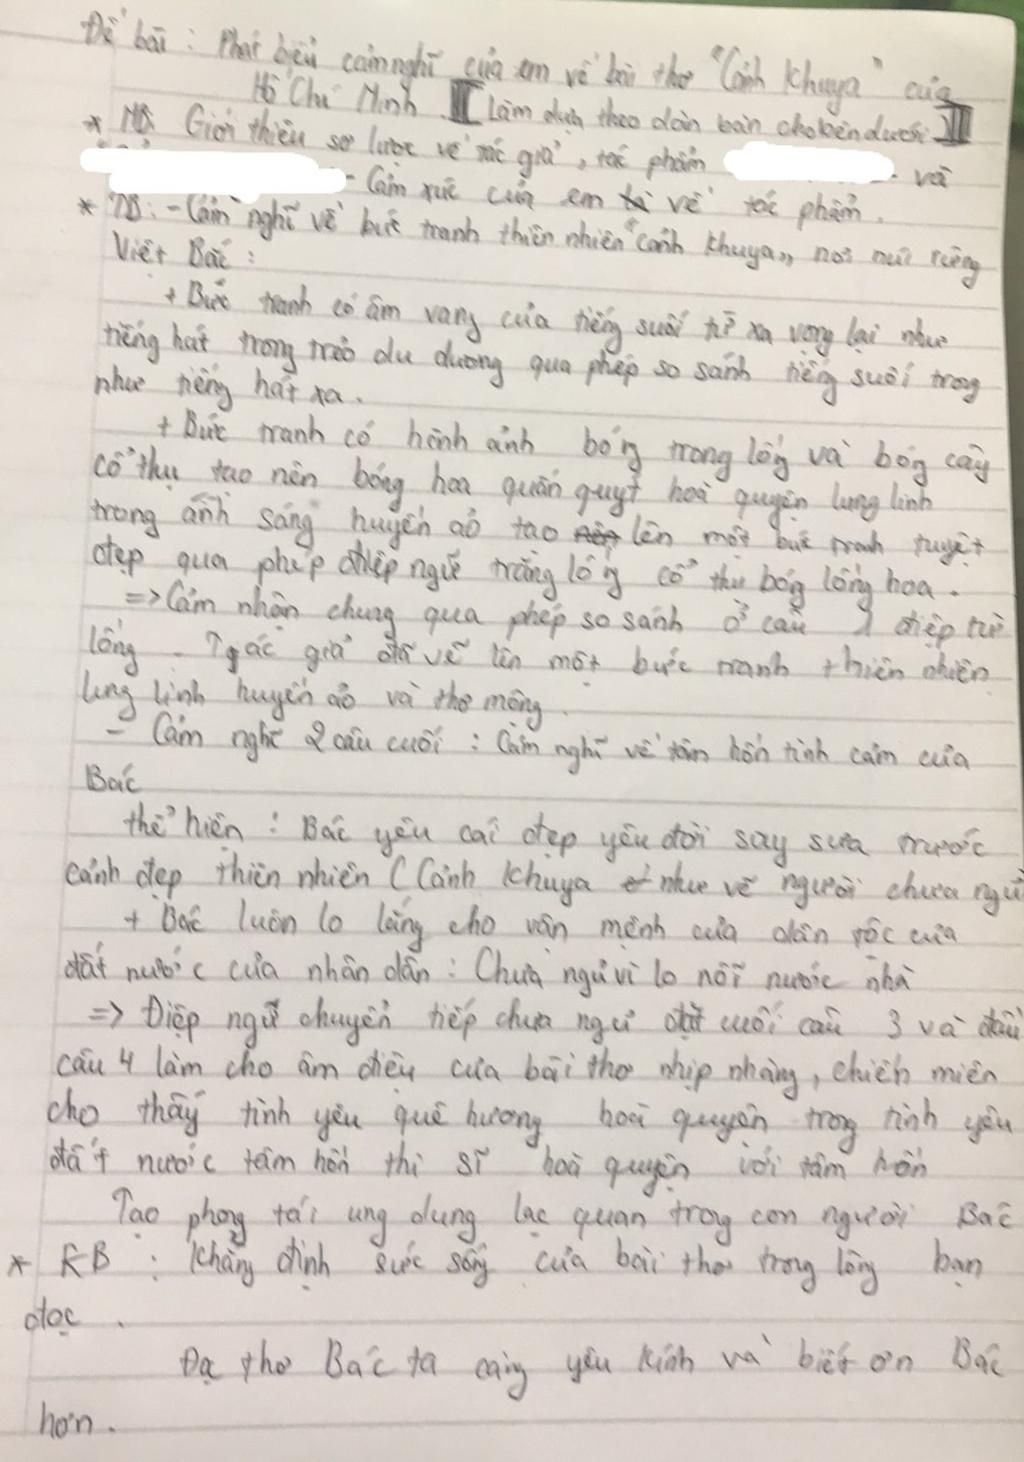 Đề bài : Phát biểu cảm nghĩ của em về bài thơ "Cảnh khuya" của
Hồ Chí Minh. [Làm dựa theo dàn bàn cho bên dưới]
* MB: Giới thiệu sơ lược về tác giả, tác phẩm và
- Cảm xúc của em về tác phẩm.
* TB: - Cảm nghĩ về bức tranh thiên nhiên "cảnh khuya" nơi núi riêng
Việt Bắc :
+ Bức tranh có âm vang của tiếng suối từ xa vọng lại như
tiếng hát trong trẻo du dương qua phép so sánh tiếng suối trong
như tiếng hát xa.
+ Bức tranh có hình ảnh bóng trong lồng và bóng cây
cổ thụ tạo nên bóng hoa quấn quýt hoà quyện lung linh
trong ánh sáng huyền ảo tạo lên một bức tranh tuyệt
đẹp qua phép điệp ngữ trăng lồng cổ thụ bóng lồng hoa.
=> Cảm nhận chung qua phép so sánh ở câu 1 điệp từ
lồng. Tác giả đã vẽ lên một bức tranh thiên nhiên
lung linh huyền ảo và thơ mộng.
- Cảm nghĩ 2 câu cuối : Cảm nghĩ về tâm hồn tình cảm của
Bác
thể hiện : Bác yêu cái đẹp yêu đời say sưa trước
cảnh đẹp thiên nhiên (Cảnh khuya như vẽ người chưa ngủ
+ Bác luôn lo lắng cho vận mệnh của dân tộc của
đất nước của nhân dân : Chưa ngủ vì lo nỗi nước nhà
=> Điệp ngữ chuyển tiếp chưa ngủ đặt cuối câu 3 và đầu
câu 4 làm cho âm điệu của bài thơ nhịp nhàng, chiền miên
cho thấy tình yêu quê hương hoà quyện trong tình yêu
đất nước tâm hồn thi sĩ hoà quyện với tâm hồn
Tạo phong thái ung dung lạc quan trong con người Bác
* KB : Khẳng định sức sống của bài thơ trong lòng bạn
đọc.
Đọc thơ Bác ta càng yêu kính và biết ơn Bác
hơn.